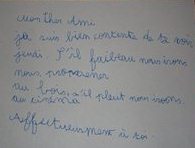 Mon cher Ami
je suis bien contente de te voir
jeudi. S'il fait beau nous irons
nous promener
au bois, s'il pleut nous irons
au cinéma
Affectueusement à toi.